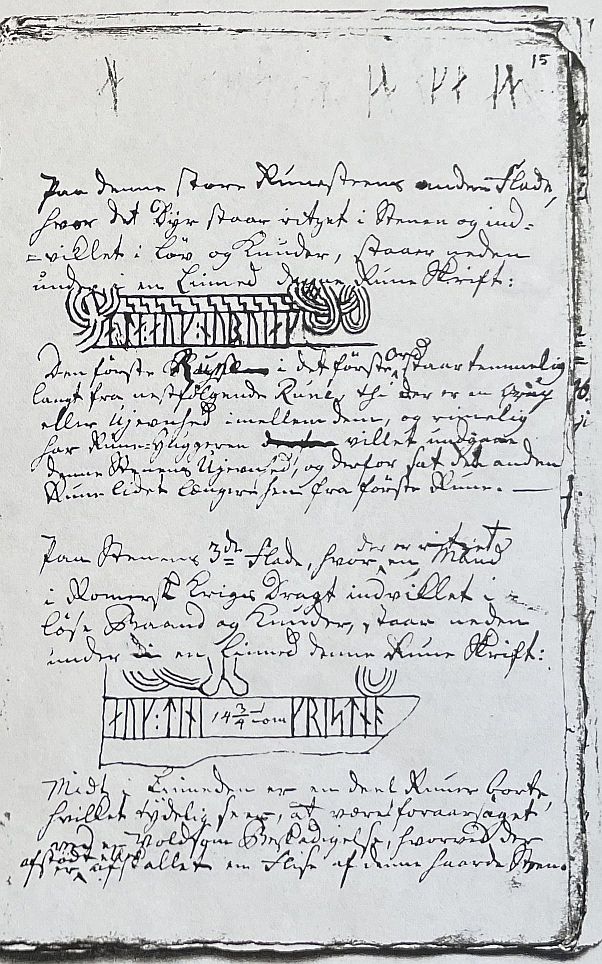 15
Paa denne store Runesteens anden Flade,
hvor det Dyr staar ritzet i Stenen og ind-
-viklet i Löv og Knuder, staaer neden
under i en Liined denne Rune Skrift:
ᛅᚢᚴ:
Den förste Rune i det förste Ord staar temmelig
langt fra nestfölgende Rune, thi der er en
eller Ujevnhed imellem dem, og rimelig
har Rune-Huggeren villet undgaae
denne Stenens Ujevnhed, og derfor sat den anden
Rune lidet længere hen fra förste Rune. —
Paa Stenens 3die Flade, hvor der er ritzet en Mand
i Romersk Krigs Dragt indviklet i
löse Baand og Knuder, staar neden
under i en Liined denne Rune Skrift:
ᛅᚢᚴ:ᛏᛅᚾ 14 3/4 Tom ᚴᚱᛁᛋᛏᚾᚬ
Midt i Liineden er en deel Runer borte,
hvilket tydelig sees, at være foraarsaget
ved en Voldsom Beskadigelse, hvorved der
er afstödt eller afskallet en Flise af denne haarde Steen.